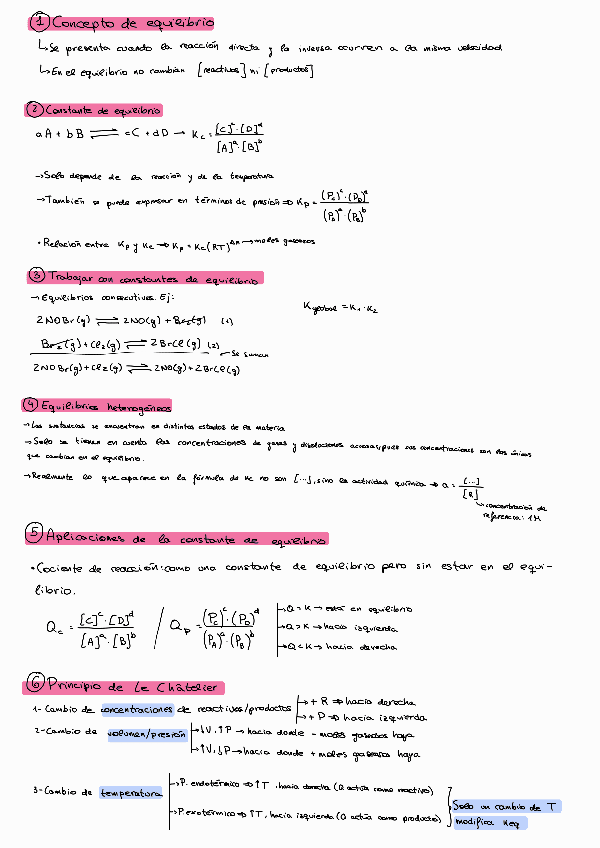 ① Concepto de equilibrio
↳ Se presenta cuando la reacción directa y la inversa ocurren a la misma velocidad
↳ En el equilibrio no cambian [reactivos] ni [productos]
② Constante de equilibrio
aA + bB ⇌ cC + dD → Kc = [C]^c · [D]^d / [A]^a · [B]^b
→ Solo depende de la reacción y de la temperatura
→ También se puede expresar en términos de presión ⇒ Kp = (Pc)^c · (PD)^d / (PA)^a · (PB)^b
• Relación entre Kp y Kc ⇒ Kp = Kc (RT)^Δn → moles gaseosos
③ Trabajar con constantes de equilibrio
→ Equilibrios consecutivos. Ej:
Kglobal = K1 · K2
2NOBr(g) ⇌ 2NO(g) + Br2(g) (1)
Br2(g) + Cl2(g) ⇌ 2BrCl(g) (2)
Se suman
2NOBr(g) + Cl2(g) ⇌ 2NO(g) + 2BrCl(g)
④ Equilibrios heterogéneos
→ Las sustancias se encuentran en distintos estados de la materia
→ Solo se tienen en cuenta las concentraciones de gases y disoluciones acuosas, pues sus concentraciones son las únicas
que cambian en el equilibrio.
→ Realmente lo que aparece en la fórmula de Kc no son [...], sino la actividad química ⇒ a = [...] / [R]
concentración de
referencia: 1M
⑤ Aplicaciones de la constante de equilibrio
• Cociente de reacción: como una constante de equilibrio pero sin estar en el equi-
librio.
Qc = [C]^c · [D]^d / [A]^a · [B]^b / Qp = (Pc)^c · (PD)^d / (PA)^a · (PB)^b
→ Q = K → está en equilibrio
→ Q > K → hacia izquierda
→ Q < K → hacia derecha
⑥ Principio de Le Châtelier
1- Cambio de concentraciones de reactivos/productos → + R ⇒ hacia derecha
→ + P ⇒ hacia izquierda
2- Cambio de volumen/presión → ↓V, ↑P → hacia donde - moles gaseosos haya
→ ↑V, ↓P → hacia donde + moles gaseosos haya
3- Cambio de temperatura → P. endotérmico ⇒ ↑T, hacia derecha (Q actúa como reactivo)
→ P. exotérmico ⇒ ↑T, hacia izquierda (Q actúa como producto)
Solo un cambio de T
modifica Keq